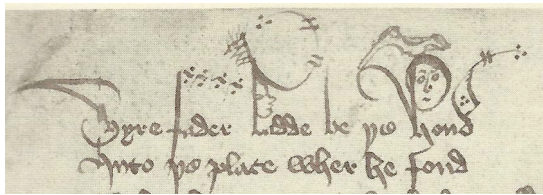 Hyre fader ladde be þe hond
Unto þe place wher he fond